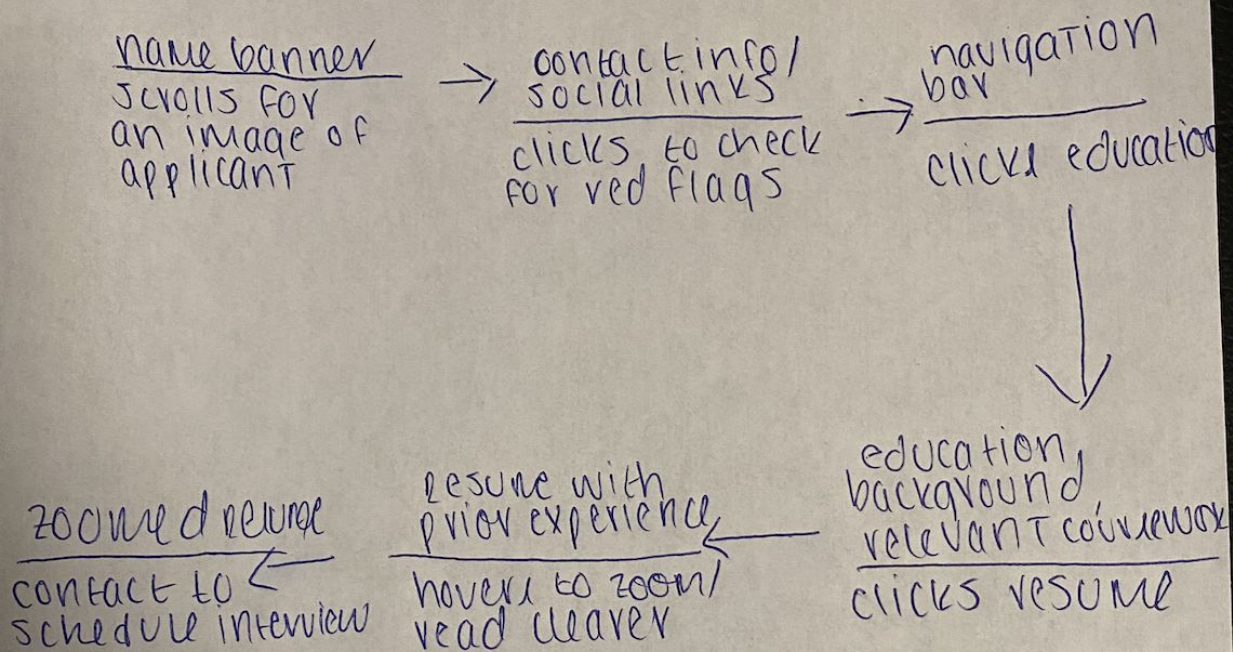 name banner
scrolls for
an image of
applicant
contact info/
social links
clicks to check
for red flags
navigation
bar
clicks education
education,
background,
relevant coursework
clicks resume
resume with
prior experience
hovers to zoom/
read clearer
zoomed resume
contact to
schedule interview